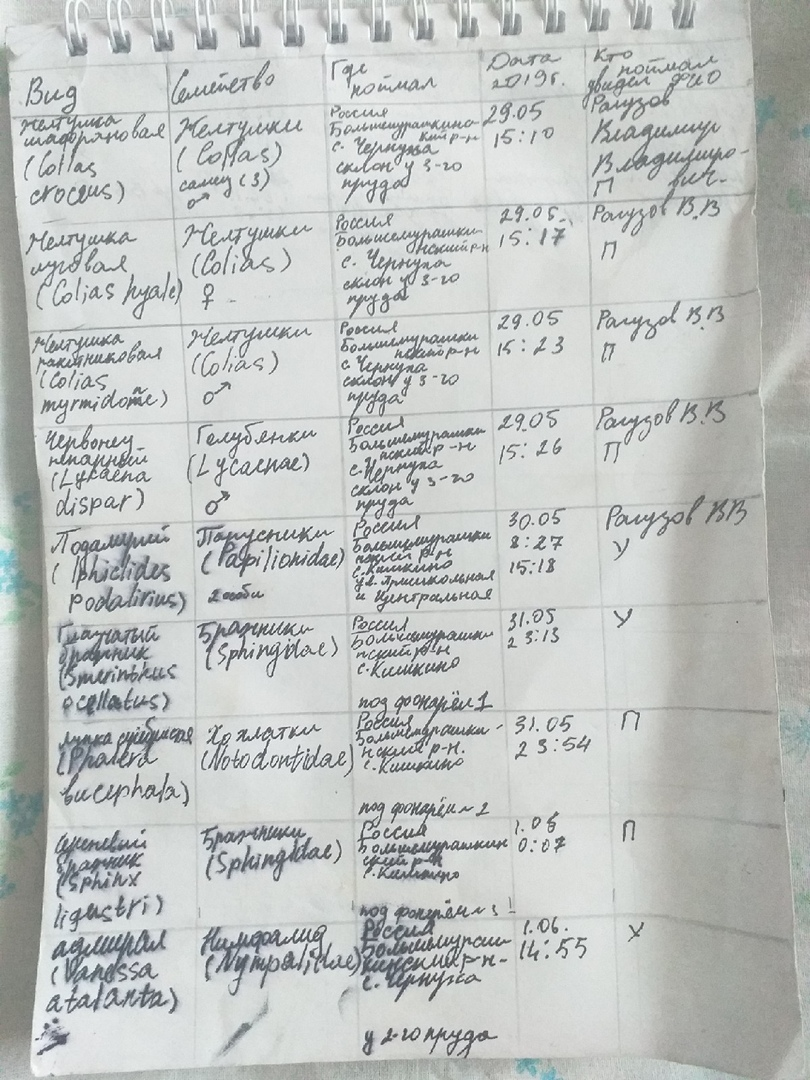 Вид
Семейство
Где
поймал
Дата
2019г.
Кто
поймал
увидел ФИО
Желтушка
шафрановая
(Colias
croceus)
Желтушки
(Colias)
самец (3)
♂
Россия
Большемурашкинс
кий р-н
с. Чернуха
склон у 3-го
пруда
29.05
15:10
Рагузов
Владимир
Владимиро-
П вич.
Желтушка
луговая
(Colias hyale)
Желтушки
(Colias)
♀
Россия
Большемурашки-
нский р-н
с. Чернуха
склон у 3-го
пруда
29.05
15:17
Рагузов В.В
П
Желтушка
ракитниковая
(Colias
myrmidone)
Желтушки
(Colias)
♂
Россия
Большемурашки
нский р-н
с Чернуха
склон у 3-го
пруда
29.05
15:23
Рагузов В.В
П
Червонец
непарный
(Lycaena
dispar)
Голубянки
(Lycaenae)
♂
Россия
Большемурашки
нский р-н
с. Чернуха
склон у 3-го
пруда
29.05
15:26
Рагузов В.В
П
Подалирий
(Iphiclides
podalirius)
Парусники
(Papilionidae)
2 особи
Россия
Большемурашки
нский р-н
с. Кишкино
ул. Пришкольная
и Центральная
30.05
8:27
15:18
Рагузов ВВ
У
Глазчатый
бражник
(Smerinthus
ocellatus)
Бражники
(Sphingidae)
Россия
Большемурашки
нский р-н
с. Кишкино
под фонарём 1
31.05
23:13
У
лунка серебристая
(Phalera
bucephala)
Хохлатки
(Notodontidae)
Россия
Большемурашки-
нский р-н.
с. Кишкино
под фонарём 2
31.05
23:54
П
Сиреневый
бражник
(Sphinx
ligustri)
Бражники
(Sphingidae)
Россия
Большемурашкин
ский р-н
с. Кишкино
под фонарём 3
0:07
П
адмирал
(Vanessa
atalanta)
Нимфалид
(Nympalidae)
Россия
с. Чернуха
у 2-го пруда
1.06.
14:55
У